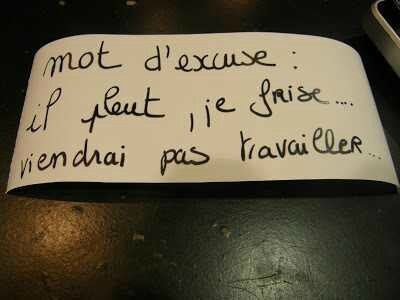 mot d'excuse :
il pleut, je frise....
viendrai pas travailler...